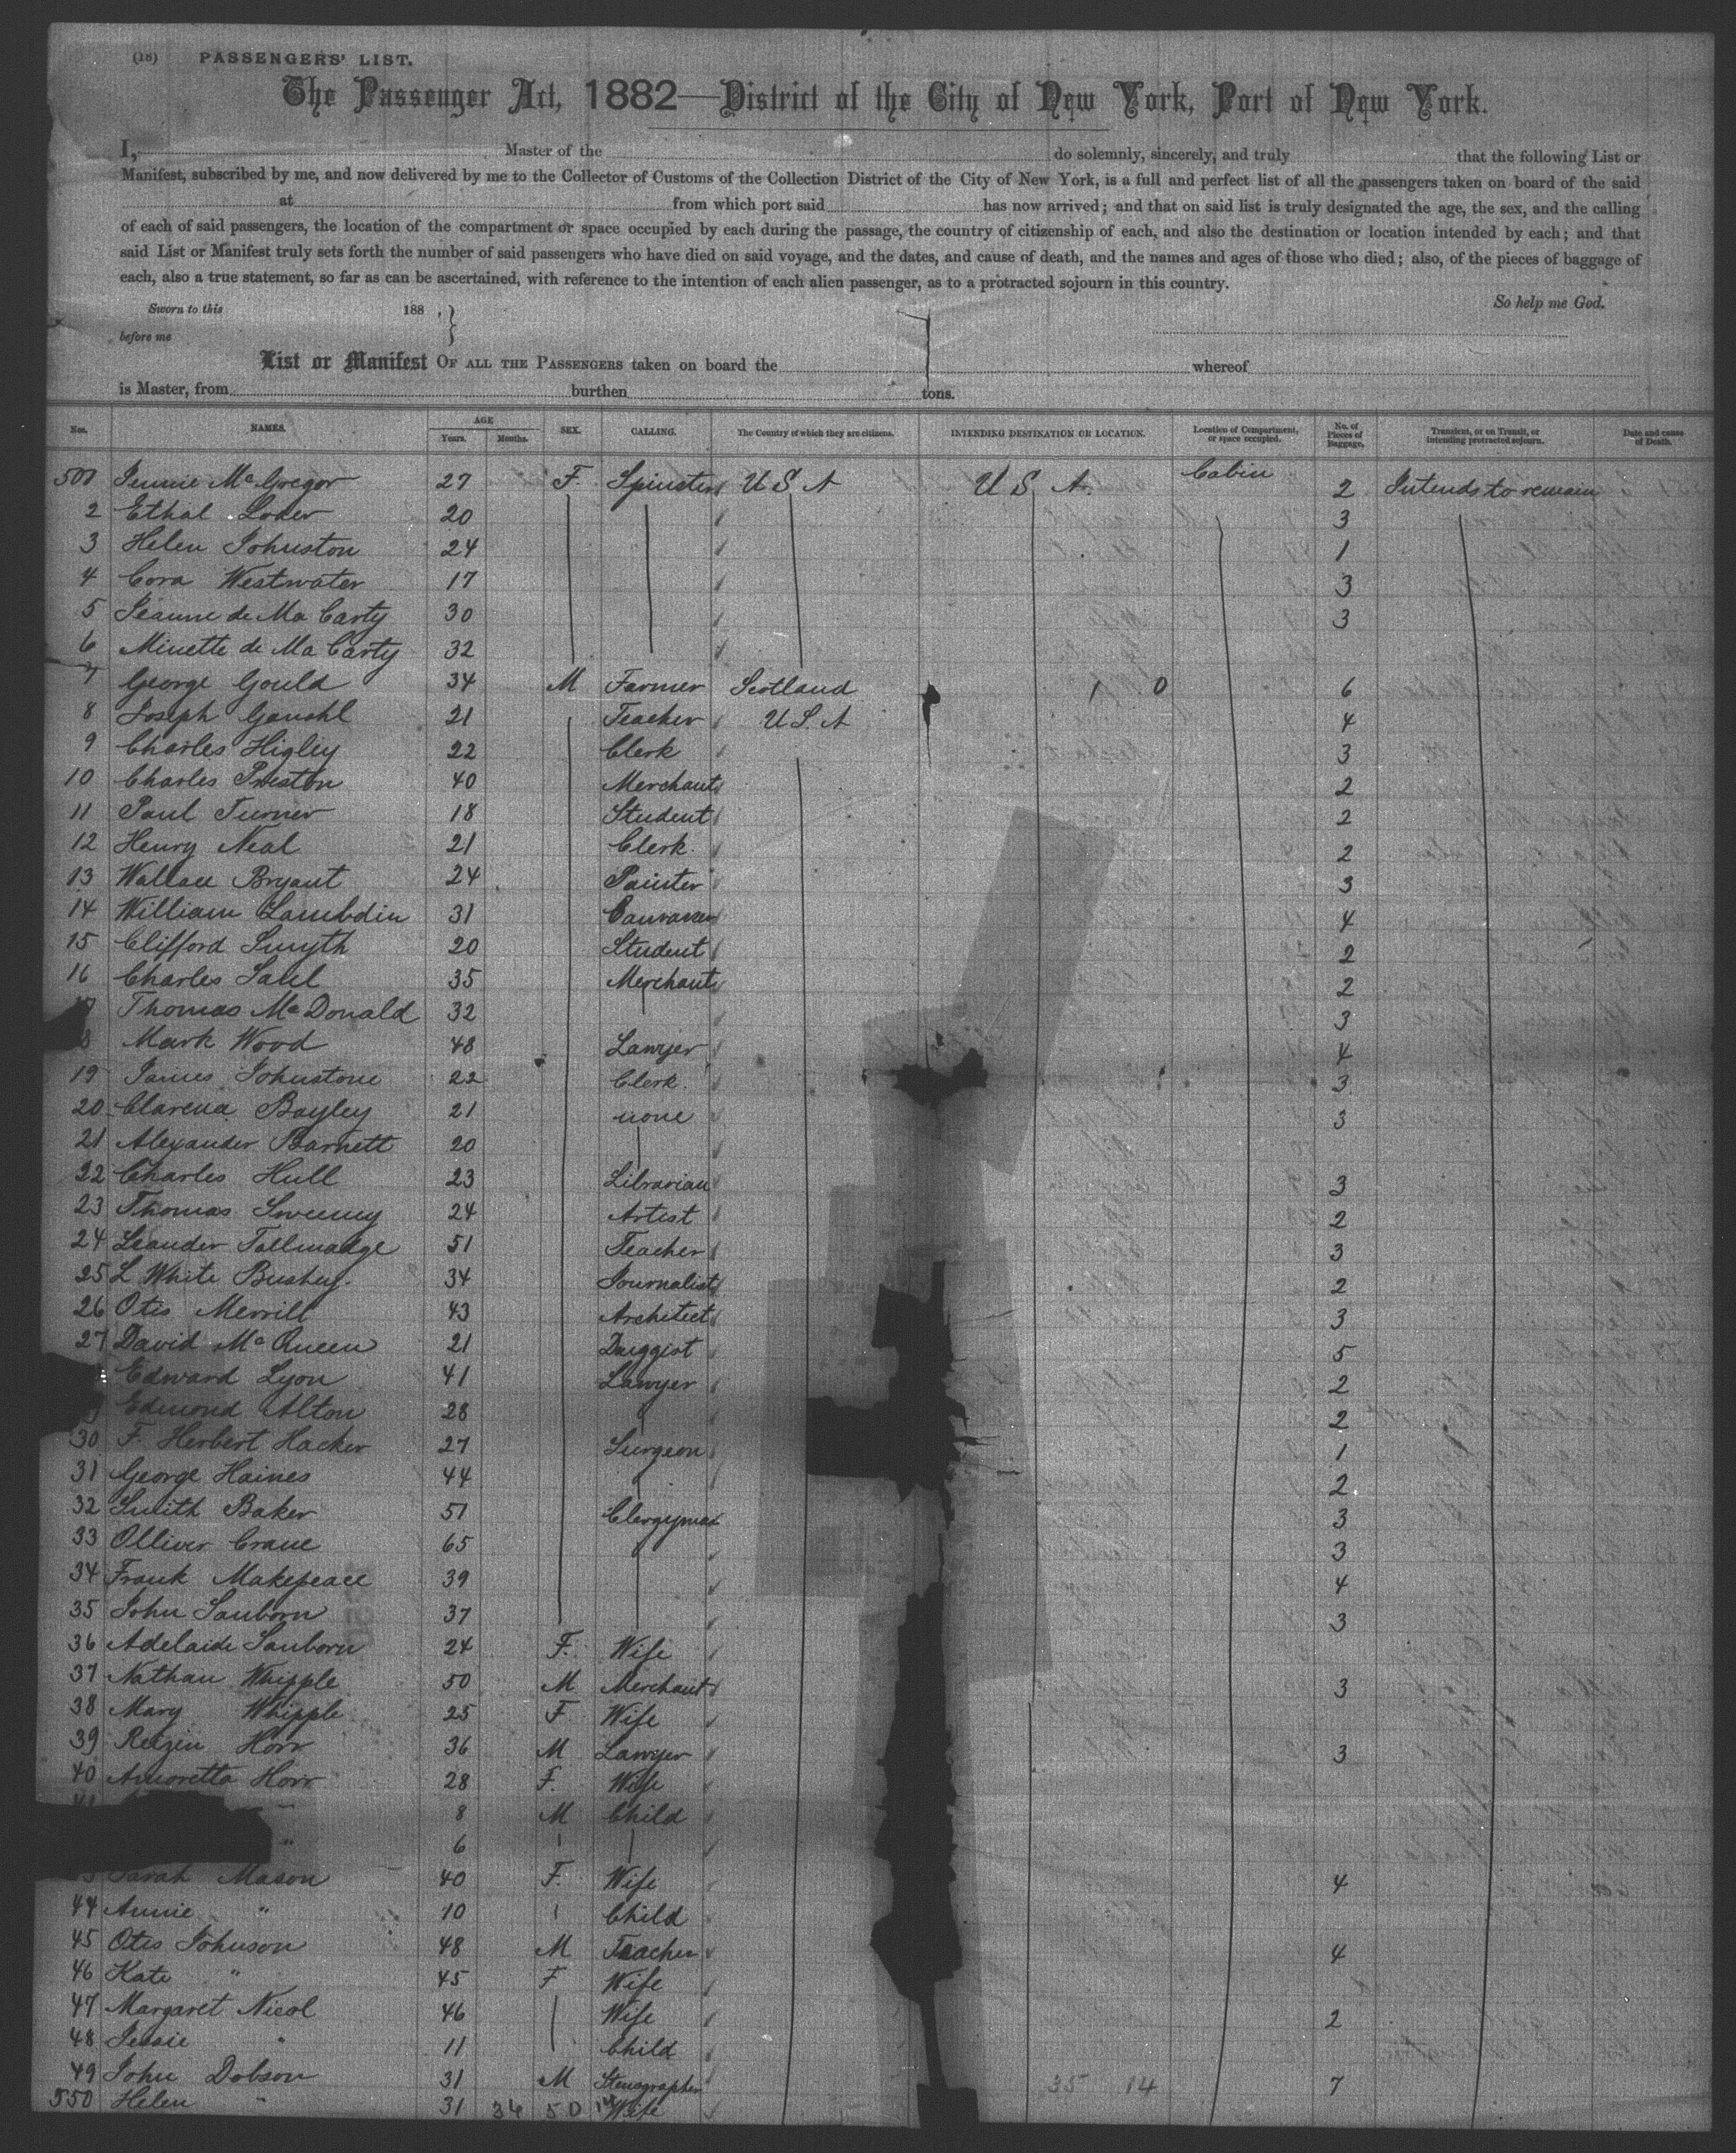 (18) PASSENGERS' LIST.
The Passenger Act, 1882—District of the City of New York, Port of New York.
I, Master of the do solemnly, sincerely, and truly that the following List or
Manifest, subscribed by me, and now delivered by me to the Collector of Customs of the Collection District of the City of New York, is a full and perfect list of all the passengers taken on board of the said
at from which port said has now arrived; and that on said list is truly designated the age, the sex, and the calling
of each of said passengers, the location of the compartment or space occupied by each during the passage, the country of citizenship of each, and also the destination or location intended by each; and that
said List or Manifest truly sets forth the number of said passengers who have died on said voyage, and the dates, and cause of death, and the names and ages of those who died; also, of the pieces of baggage of
each, also a true statement, so far as can be ascertained, with reference to the intention of each alien passenger, as to a protracted sojourn in this country.
So help me God.
Sworn to this 188 , }
before me
List or Manifest OF ALL THE PASSENGERS taken on board the whereof
is Master, from burthen tons.
Nos. NAMES. AGE Years. Months. SEX. CALLING. The Country of which they are citizens. INTENDING DESTINATION OR LOCATION. Location of Compartment, or space occupied. No. of Pieces of Baggage. Transient, or on Transit, or intending protracted sojourn. Date and cause of Death.
501 Jennie McGregor 27 F. Spinster U S A U S A. Cabin 2 Intends to remain
2 Ethal Loder 20 3
3 Helen Johnston 24 1
4 Cora Westwater 17 3
5 Jeanne de Ma Carty 30 3
6 Minette de Ma Carty 32
7 George Gould 34 M Farmer Scotland 1 0 6
8 Joseph 21 Teacher U.S.A 4
9 Charles Higley 22 Clerk 3
10 Charles Preston 40 Merchant 2
11 Paul Turner 18 Student 2
12 Henry Neal 21 Clerk. 2
13 Wallace Bryant 24 Painter 3
14 William Lambdin 31 4
15 Clifford Smyth 20 Student 2
16 Charles 35 Merchant 2
Thomas McDonald 32 3
8 Mark Wood 48 Lawyer 4
19 James Johnstone 22 Clerk. 3
20 Clarence Bayley 21 none 3
21 Alexander Barnett 20
22 Charles Hull 23 Librarian 3
23 Thomas Sweeney 24 Artist 2
24 Leander Tallmadge 51 Teacher 3
25 L White Busbey. 34 Journalist 2
26 Otis Merrill 43 Architect 3
27 David McQueen 21 Druggist 5
Edward Lyon 41 Lawyer 2
Edmond Alton 28 2
30 F. Herbert Hacker 27 Surgeon 1
31 George Haines 44 2
32 Smith Baker 51 Clergyman 3
33 Olliver Crane 65 3
34 Frank Makepeace 39 4
35 John Sanborn 37 3
36 Adelaide Sanborn 24 F. Wife
37 Nathan Whipple 50 M Merchant 3
38 Mary Whipple 25 F Wife
39 Horr 36 M Lawyer 3
40 Amoretta Horr 28 F. Wife
8 M Child
" 6
Sarah Mason 40 F. Wife 4
44 Annie " 10 Child
45 Otis Johnson 48 M Teacher 4
46 Kate " 45 F Wife
47 Margaret Nicol 46 Wife 2
48 Jessie " 11 Child
49 John Dobson 31 M Stenographer 35 14 7
550 Helen " 31 36 50 14 Wife